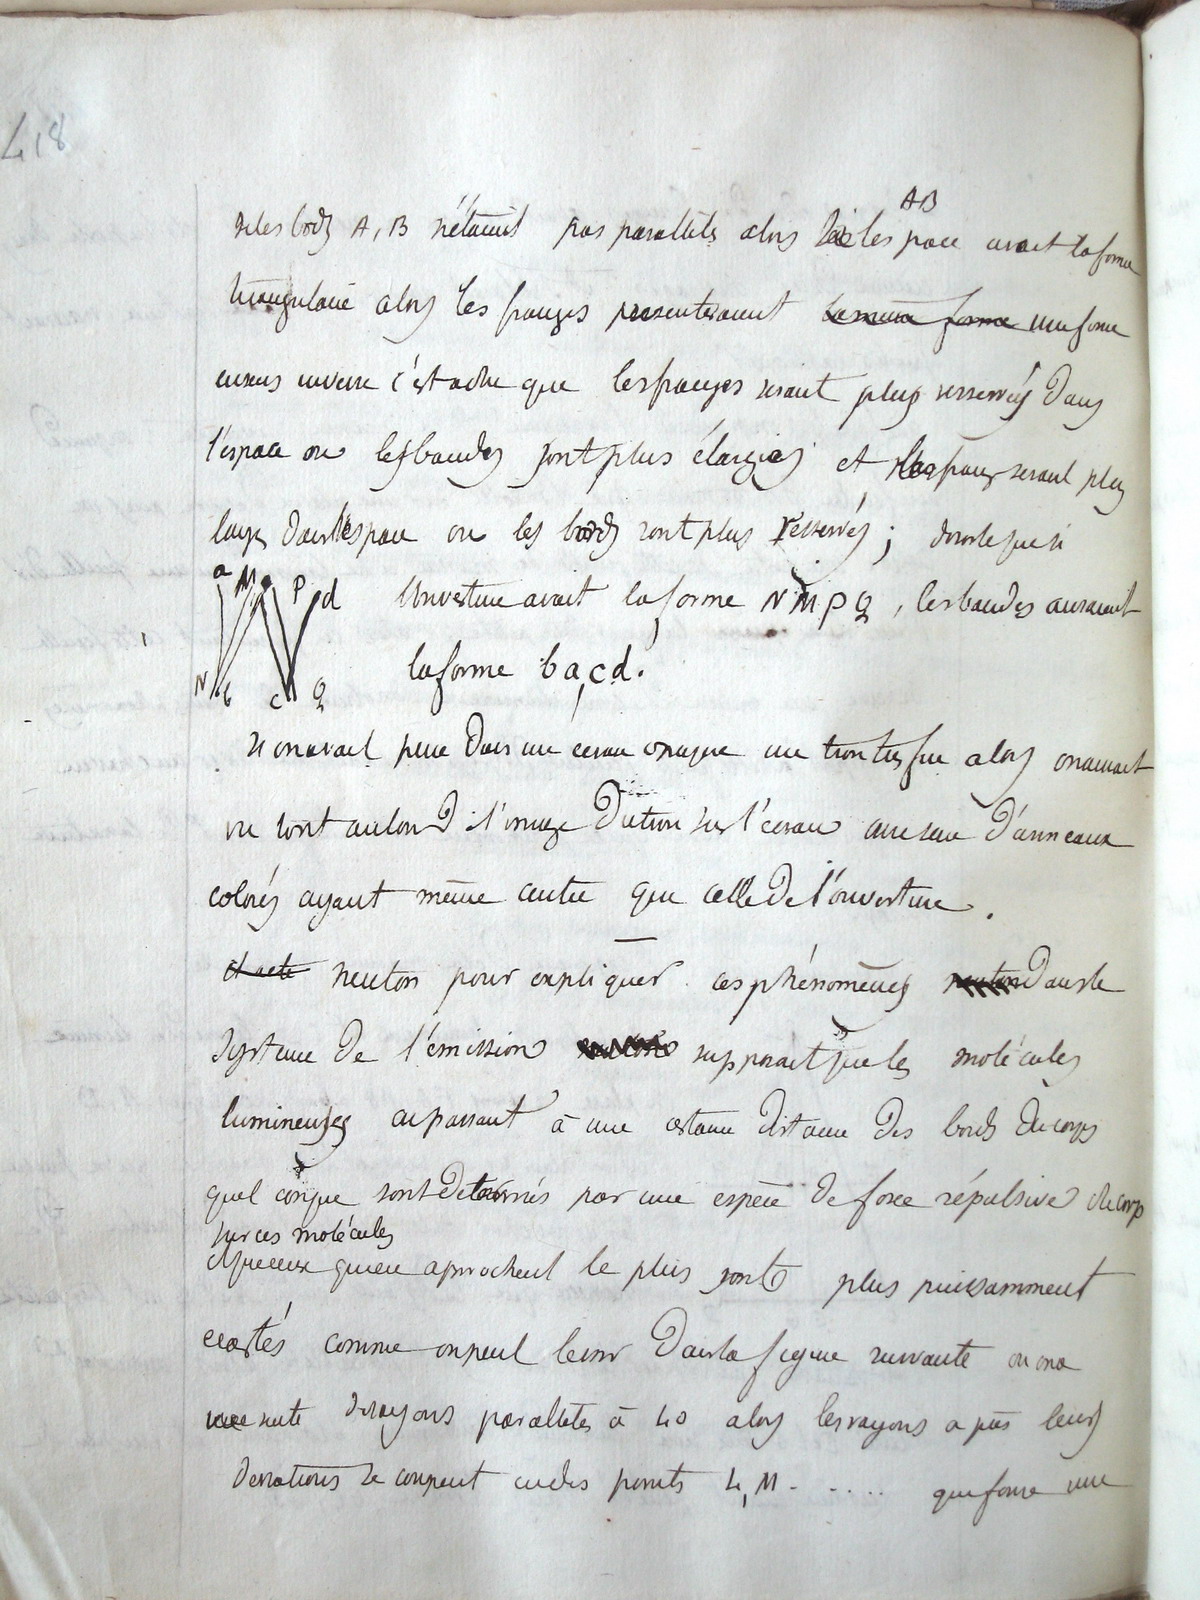 418
si les bords A, B n'étaient pas parallèles alors si lespace AB avait la forme
triangulaire alors les franges presenteraient la meme forme une forme
en sens inverse c'est a dire que les franges seront plus resserrées dans
l'espace ou les bandes sont plus élargies et les frang seront plus
larges dans l'espace ou les bords sont plus resserrés ; de sorte que si
a M P d
l'ouverture avait la forme N M P Q , les bandes auraient
la forme b a, c d.
N b c Q
si on avait percé dans un écran opaque un trou tres fin alors on aurait
vu tout autour de l'image du trou sur l'écran une serie d'anneaux
colorés ayant même centre que celle de l'ouverture.
et cete neuton pour expliquer ces phénomènes neuton dans le
systeme de l'émission supposait que les molécules
lumineuses en passant à une certaine distance des bords du corps
quel conque sont detournés par une espèce de force répulsive du corp
sur ces molécules
et que ceux qui en aprochent le plus sont plus puissamment
ecartés comme on peut le voir dans la figure suivante ou on a
une suite de rayons parallèles à 40 alors les rayons a près leurs
deviations se coupent en des points L, M - .... que forme une